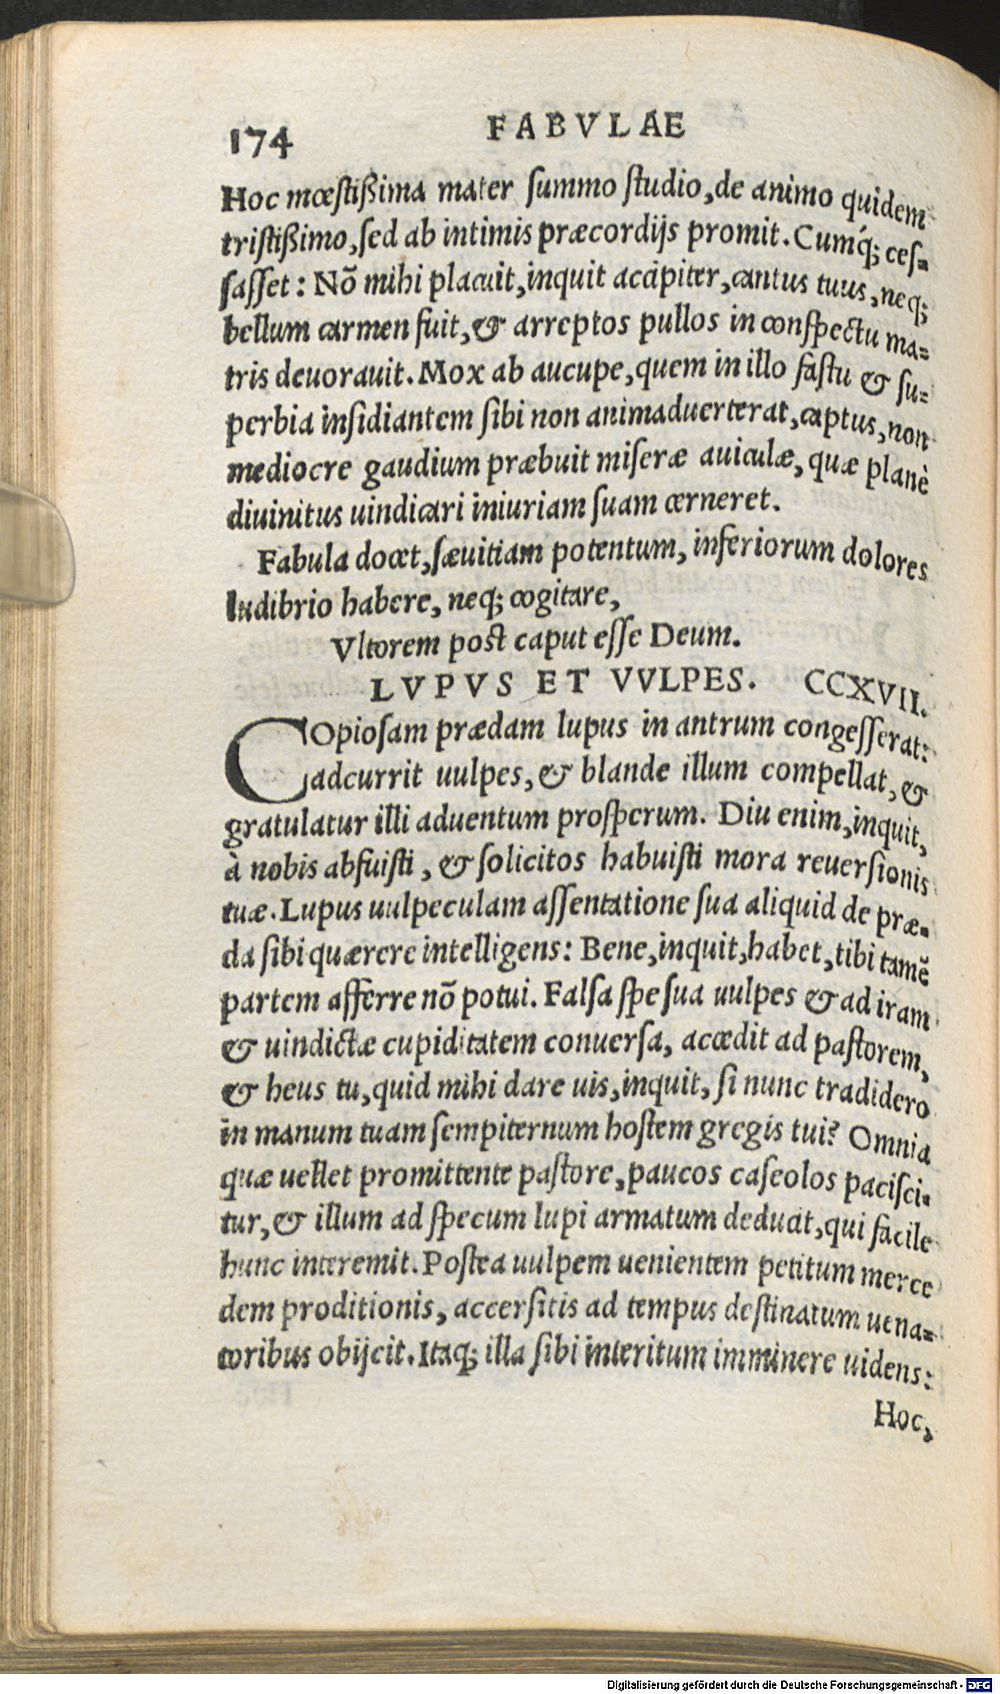 174 FABVLAE
Hoc mœstißima mater summo studio, de animo quidem
tristißimo, sed ab intimis præcordijs promit. Cumq́; ces-
sasset: Nõ mihi placuit, inquit accipiter, cantus tuus, neq;
bellum carmen fuit, & arreptos pullos in conspectu ma-
tris deuorauit. Mox ab aucupe, quem in illo fastu & su-
perbia insidiantem sibi non animaduerterat, captus, non
mediocre gaudium præbuit miseræ auiculæ, quæ planè
diuinitus uindicari iniuriam suam cerneret.
Fabula docet, sæuitiam potentum, inferiorum dolores
ludibrio habere, neq; cogitare,
Vltorem post caput esse Deum.
LVPVS ET VVLPES. CCXVII.
COpiosam prædam lupus in antrum congesserat:
adcurrit uulpes, & blande illum compellat, &
gratulatur illi aduentum prosperum. Diu enim, inquit,
à nobis abfuisti, & solicitos habuisti mora reuersionis
tuæ. Lupus uulpeculam assentatione sua aliquid de præ-
da sibi quærere intelligens: Bene, inquit, habet, tibi tamẽ
partem afferre nõ potui. Falsa spe sua uulpes & ad iram
& uindictæ cupiditatem conuersa, accedit ad pastorem,
& heus tu, quid mihi dare uis, inquit, si nunc tradidero
in manum tuam sempiternum hostem gregis tui? Omnia
quæ uellet promittente pastore, paucos caseolos pacisci-
tur, & illum ad specum lupi armatum deducit, qui facile
hunc interemit. Postea uulpem uenientem petitum merce
dem proditionis, accersitis ad tempus destinatum uena-
toribus obijcit. Itaq; illa sibi interitum imminere uidens:
Hoc,
Digitalisierung gefördert durch die Deutsche Forschungsgemeinschaft - DFG